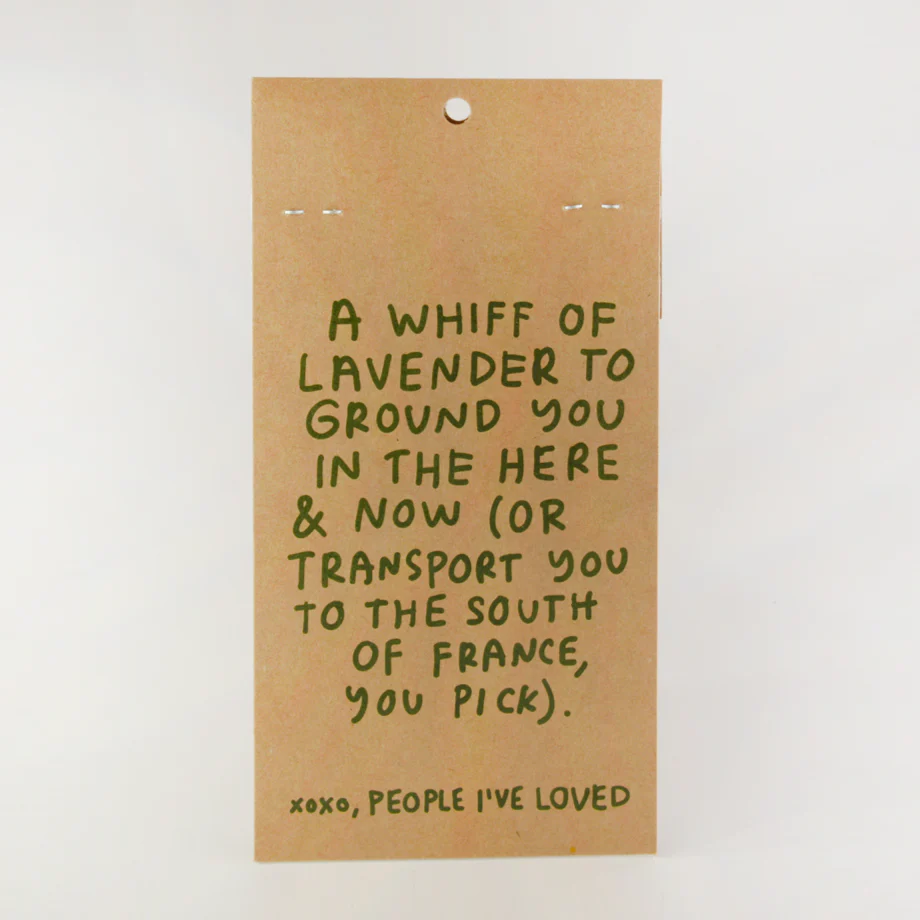 A WHIFF OF
LAVENDER TO
GROUND YOU
IN THE HERE
& NOW (OR
TRANSPORT YOU
TO THE SOUTH
OF FRANCE,
YOU PICK).
xoxo, PEOPLE I'VE LOVED